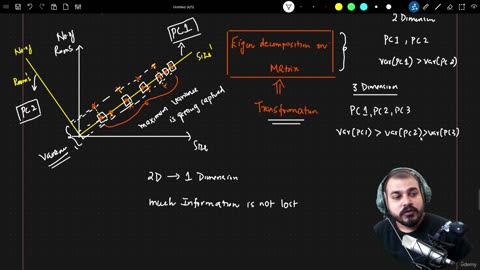 No. of
Rooms
No. of
Rooms
PC2
PC1
Size'
Size
maximum variance
is getting captured
Variance
2D → 1 Dimension
much Information is not lost
Eigen decomposition on
Matrix
Transformation
2 Dimension
PC1, PC2
var(PC1) > var(PC2)
3 Dimension
PC1, PC2, PC3
var(PC1) > var(PC2) > var(PC3)
Udemy